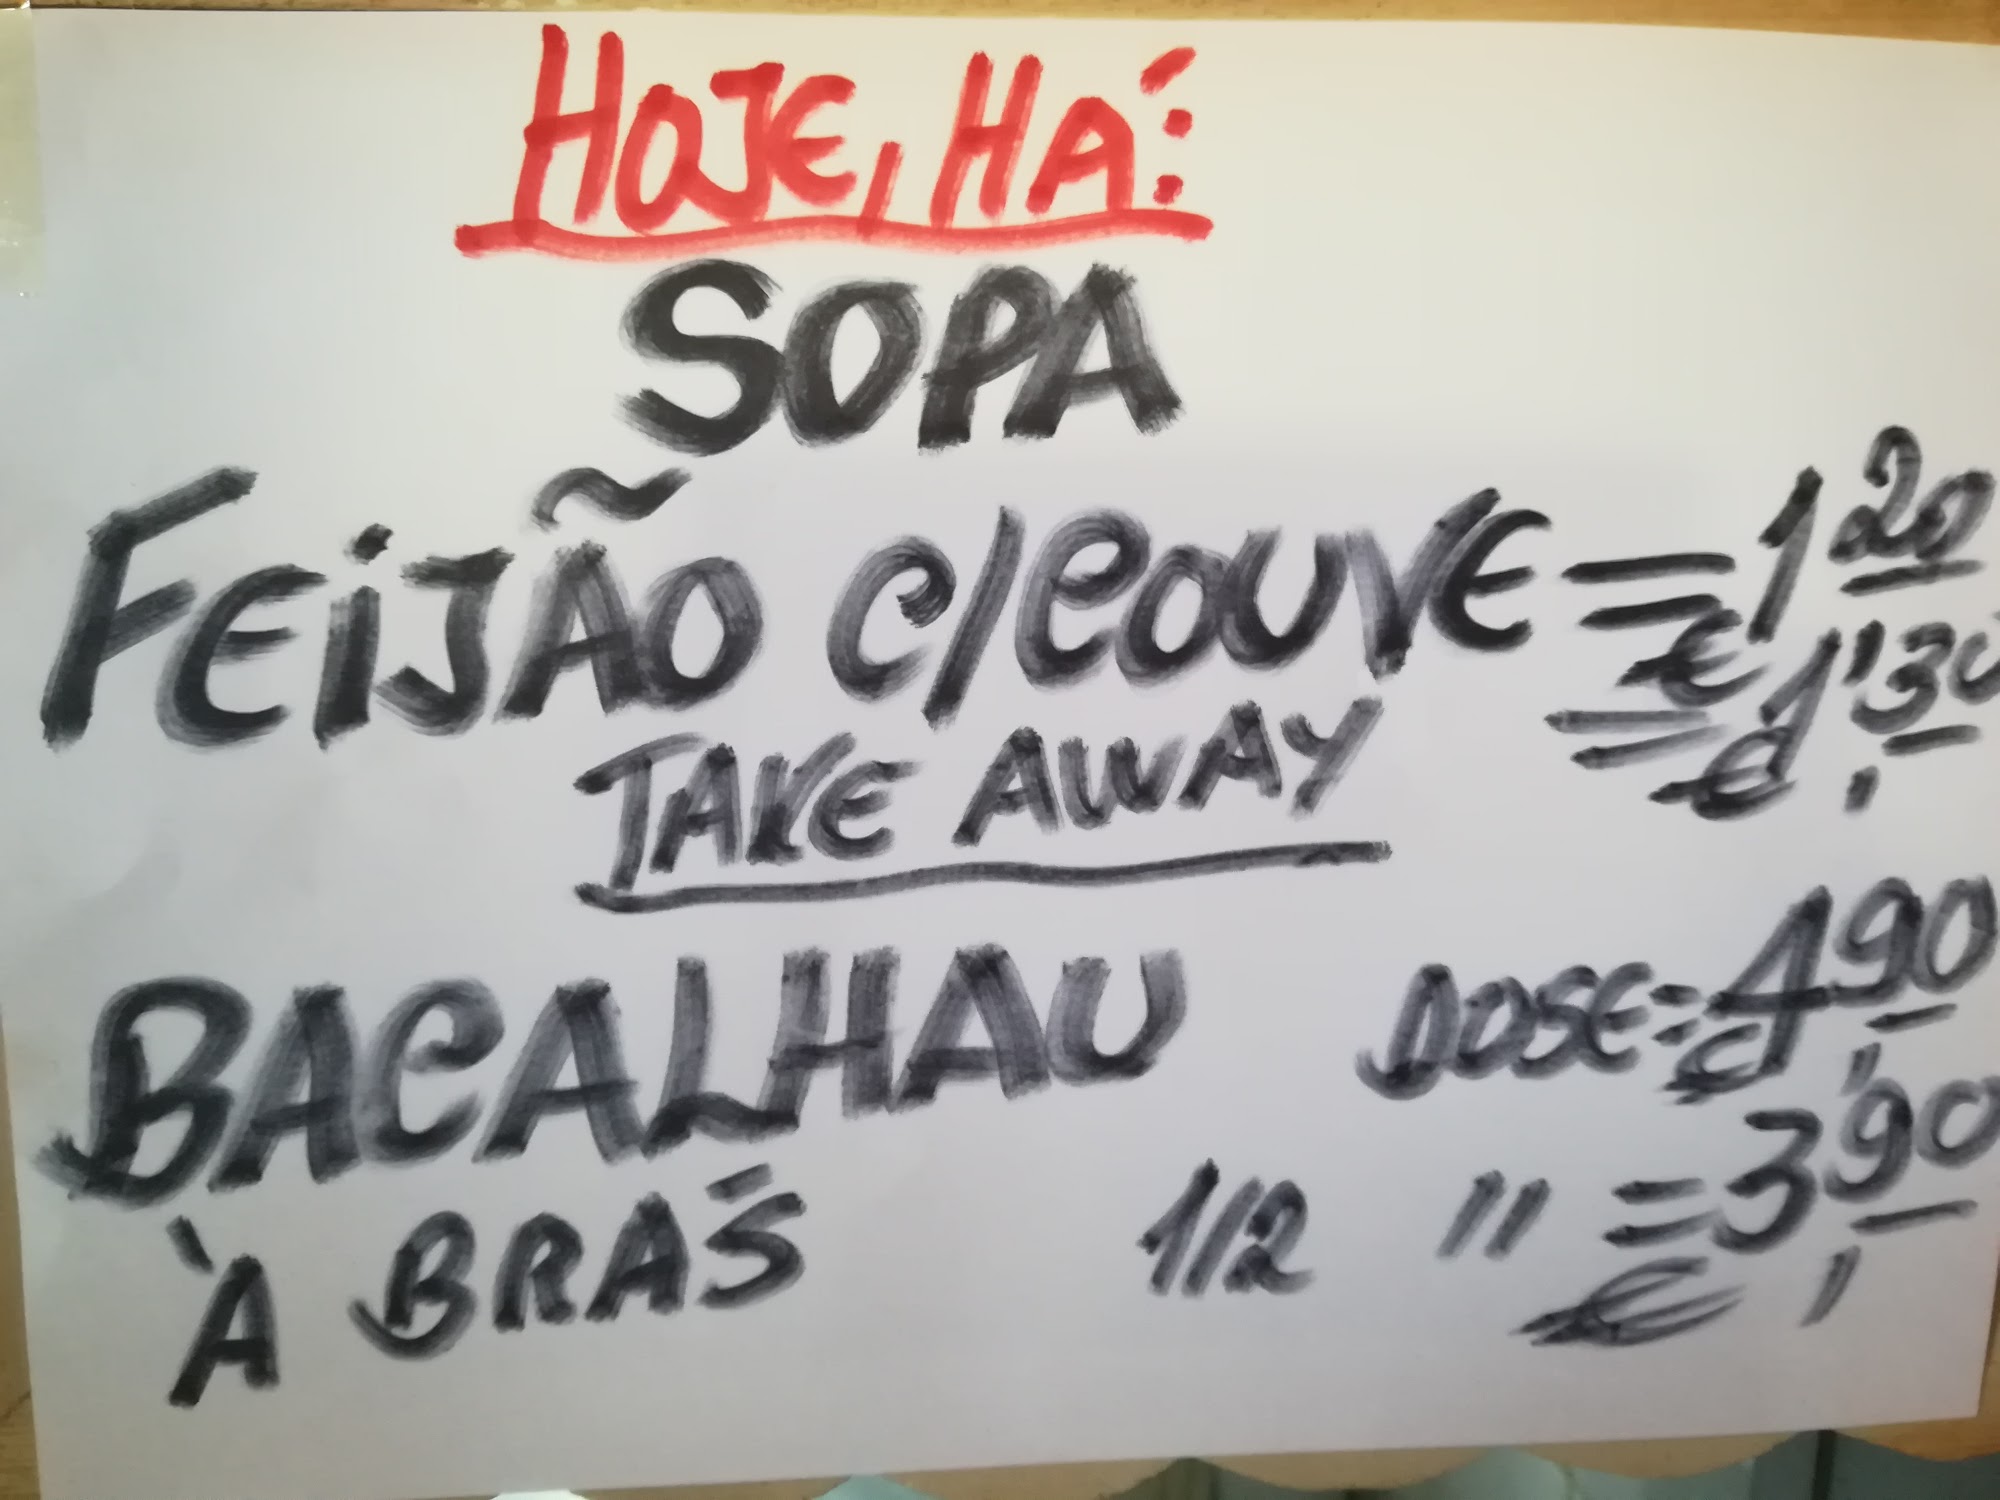 HOJE, HÁ:
SOPA
FEIJÃO C/COUVE = € 1,20
TAKE AWAY = € 1,30
BACALHAU DOSE = € 4,90
À BRÁS 1/2 " = € 3,90